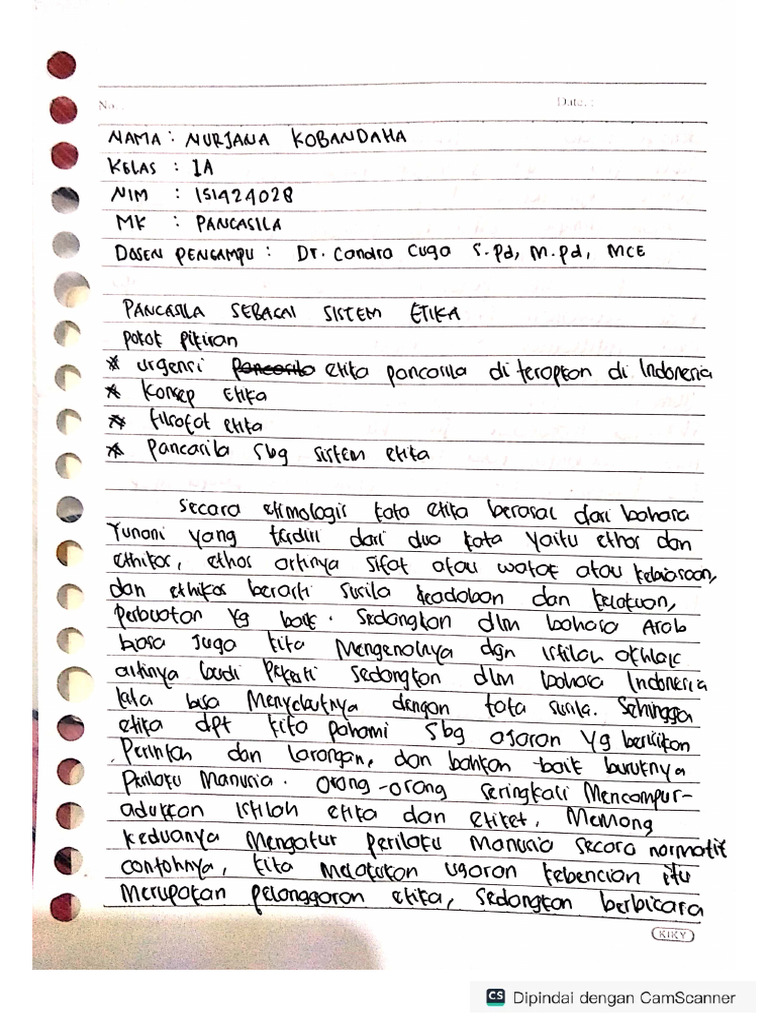 No :
Date. :
NAMA : NURJANA KOBANDAHA
KELAS : 1A
NIM : 151424028
MK : PANCASILA
DOSEN PENGAMPU : Dr. Candra Cuga S.Pd, M.Pd, MCE
PANCASILA SEBAGAI SISTEM ETIKA
Pokok pikiran
* urgensi Pancasila etika pancasila di terapkan di Indonesia
* Konsep Etika
* filsafat etika
* Pancasila sbg sistem etika
Secara etimologis kata etika berasal dari bahasa
Yunani yang terdiri dari dua kata yaitu ethos dan
ethikos, ethos artinya sifat atau watak atau kebiasaan,
dan ethikos berarti susila keadaban dan kelakuan,
perbuatan yg baik. Sedangkan dlm bahasa Arab
biasa Juga kita Mengenalnya dgn istilah akhlak
artinya budi Pekerti sedangkan dlm bahasa Indonesia
kita bisa Menyebutnya dengan tata susila. Sehingga
etika dpt kita pahami sbg ajaran yg berisikan
Perintah dan larangan, dan bahkan baik buruknya
Perilaku Manusia. orang-orang seringkali Mencampur-
adukkan istilah etika dan etiket. Memang
keduanya Mengatur perilaku manusia secara normatif
contohnya, kita Melakukan ugaran kebencian itu
Merupakan pelanggaran etika, sedangkan berbicara
KIKY
CS Dipindai dengan CamScanner